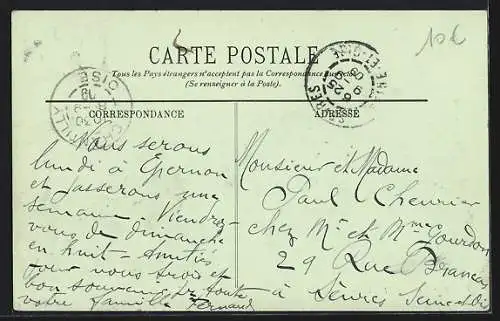 10€
CARTE POSTALE
Tous les Pays étrangers n'acceptent pas la Correspondance au recto
(Se renseigner à la Poste).
CORRESPONDANCE
Nous serons
lundi à Epernon
et passerons une
semaine. Viendrez
vous de dimanche
en huit - Amitiés
pour vous trois et
bon souvenir de toute
votre famille Fernand
ADRESSE
Monsieur et Madame
Paul Cheurier
chez Mr et Mme Gourdon
29 Rue Brancas
à Sèvres Seine et Oise
OISE
SEINE-ET-OISE
SEVRES